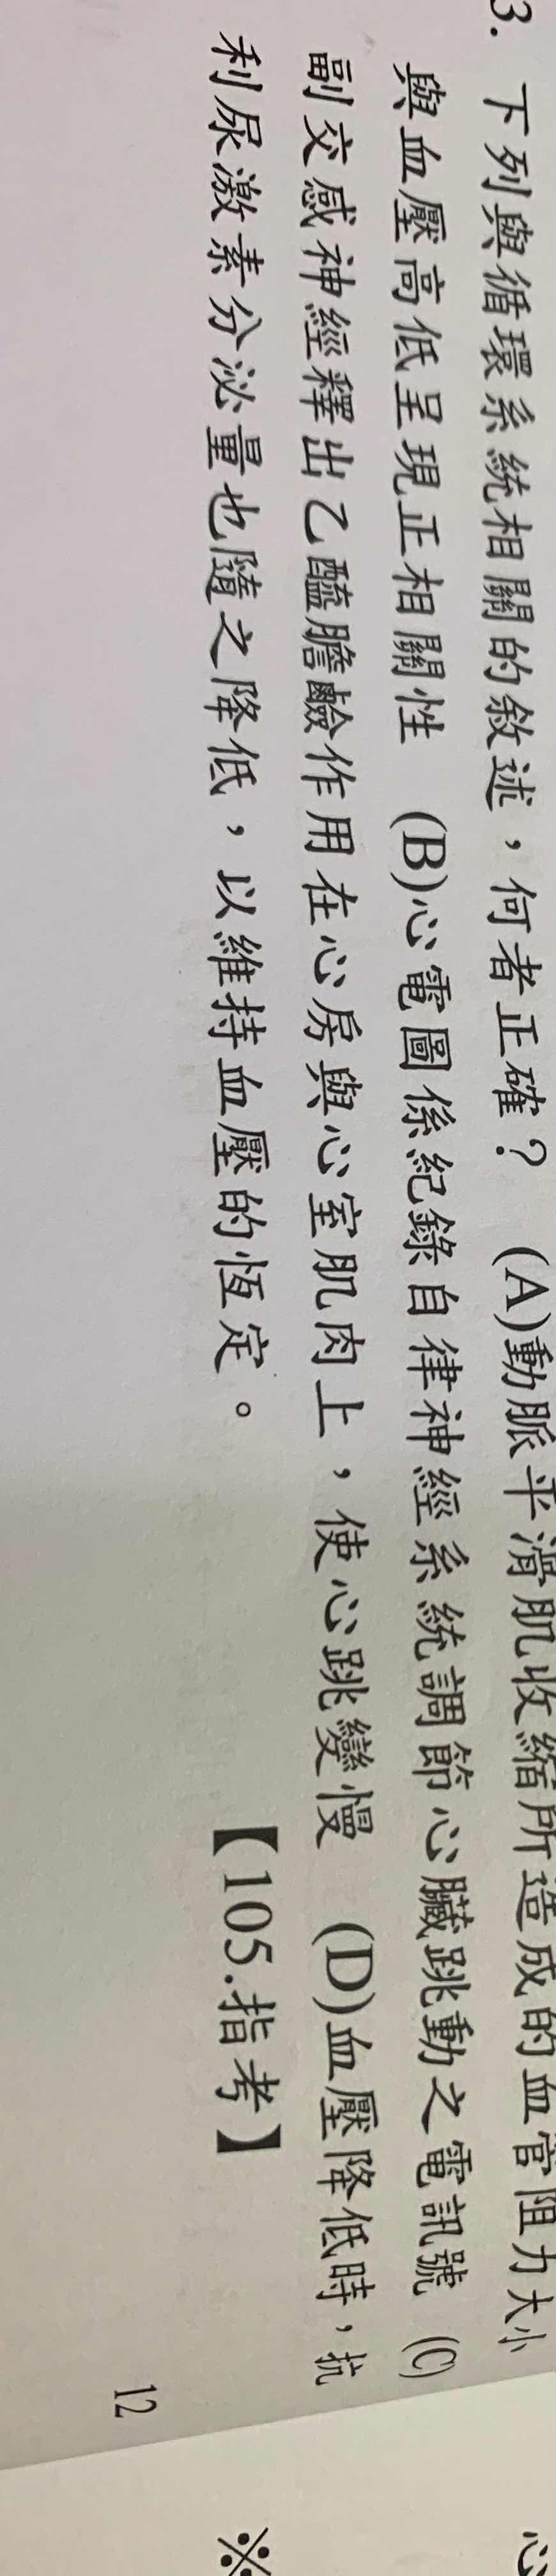 3. 下列與循環系統相關的敘述，何者正確？ (A)動脈平滑肌收縮所造成的血管阻力大小
與血壓高低呈現正相關性 (B)心電圖係紀錄自律神經系統調節心臟跳動之電訊號 (C)
副交感神經釋出乙醯膽鹼作用在心房與心室肌肉上，使心跳變慢 (D)血壓降低時，抗
利尿激素分泌量也隨之降低，以維持血壓的恆定。 【105.指考】
12
※